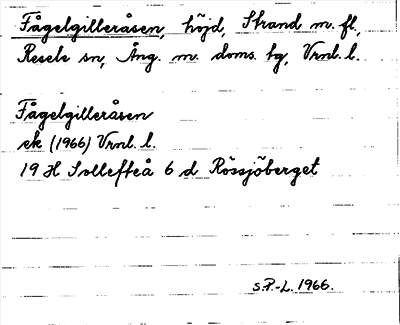 Fågelgilleråsen, höjd, Strand m. fl.,
Resele sn, Ång. m. doms. tg, Vrnl. l.
Fågelgilleråsen
ek (1966) Vrnl. l.
19 H Sollefteå 6 d Rössjöberget
S.P.-L. 1966.